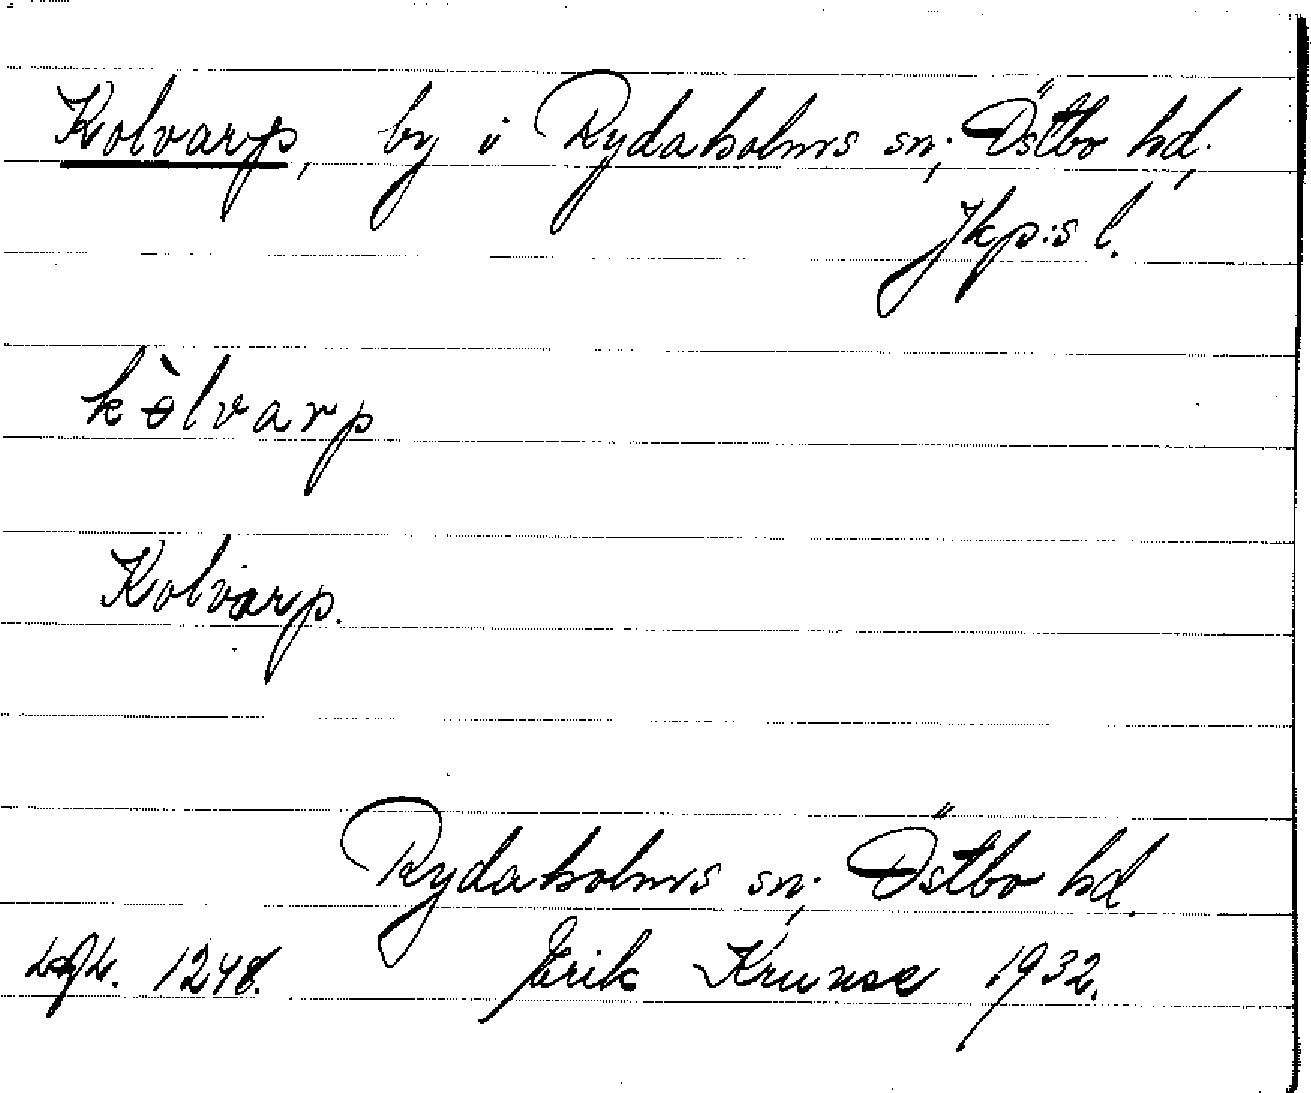 Kolvarp, by i Rydaholms sn, Östbo hd,
Jkp:s l.
kɵ̀lvarp
Kolvarp.
Rydaholms sn, Östbo hd.
1248. Erik Krunse 1932.